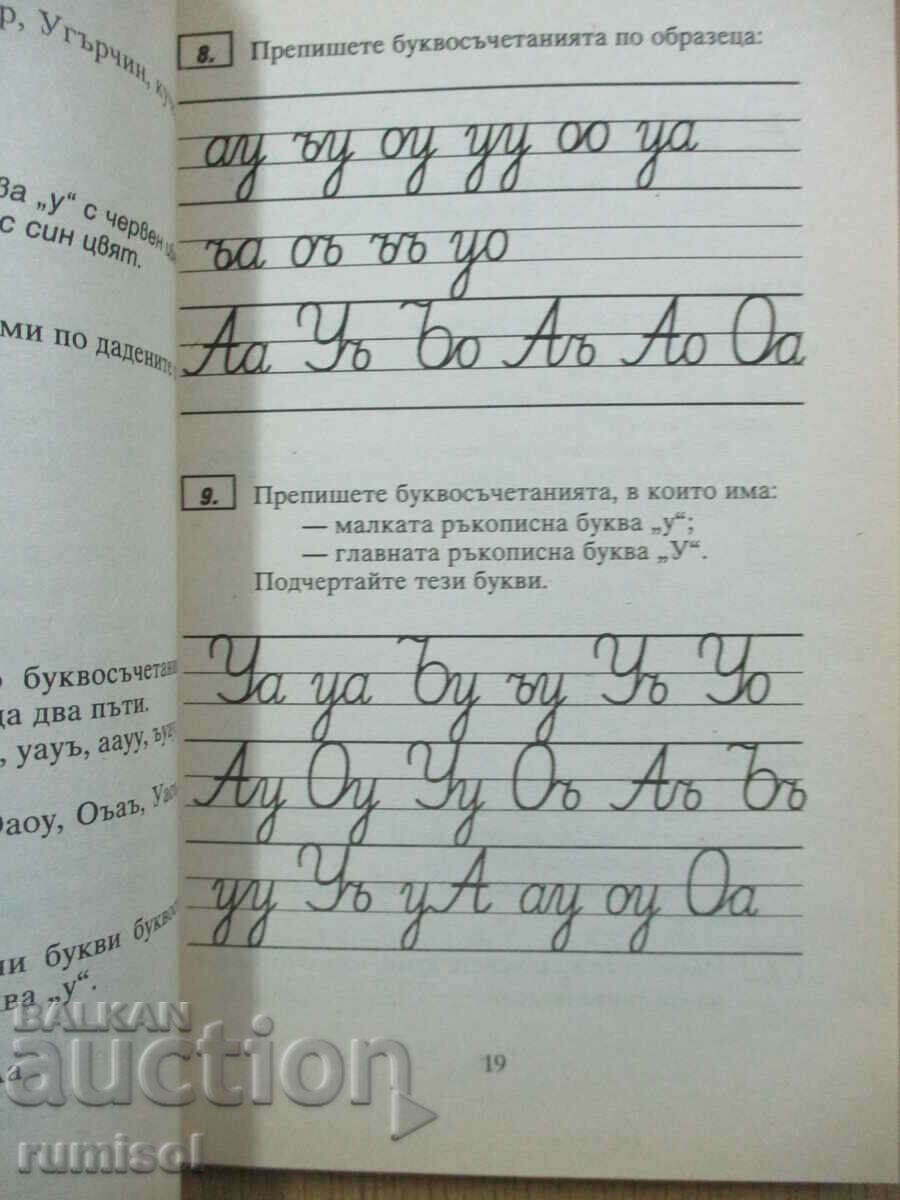 Угърчин,
„у“ с червен
с син цвят.
ми по дадените
буквосъчетания
да два пъти.
уауъ, аауу,
Оаоу, Оъаъ,
букви
„у“.
8. Препишете буквосъчетанията по образеца:
ау ъу оу уу оо уа
ъа оъ ъъ уо
Аа Уъ Ъо Аъ Ао Оа
9. Препишете буквосъчетанията, в които има:
— малката ръкописна буква „у“;
— главната ръкописна буква „У“.
Подчертайте тези букви.
Уа уа Ъу ъу Уъ Уо
Ау Оу Уу Оъ Аъ Ъъ
уу Уъ уА ау оу Оа
19
BALKAN
auction
rumisol